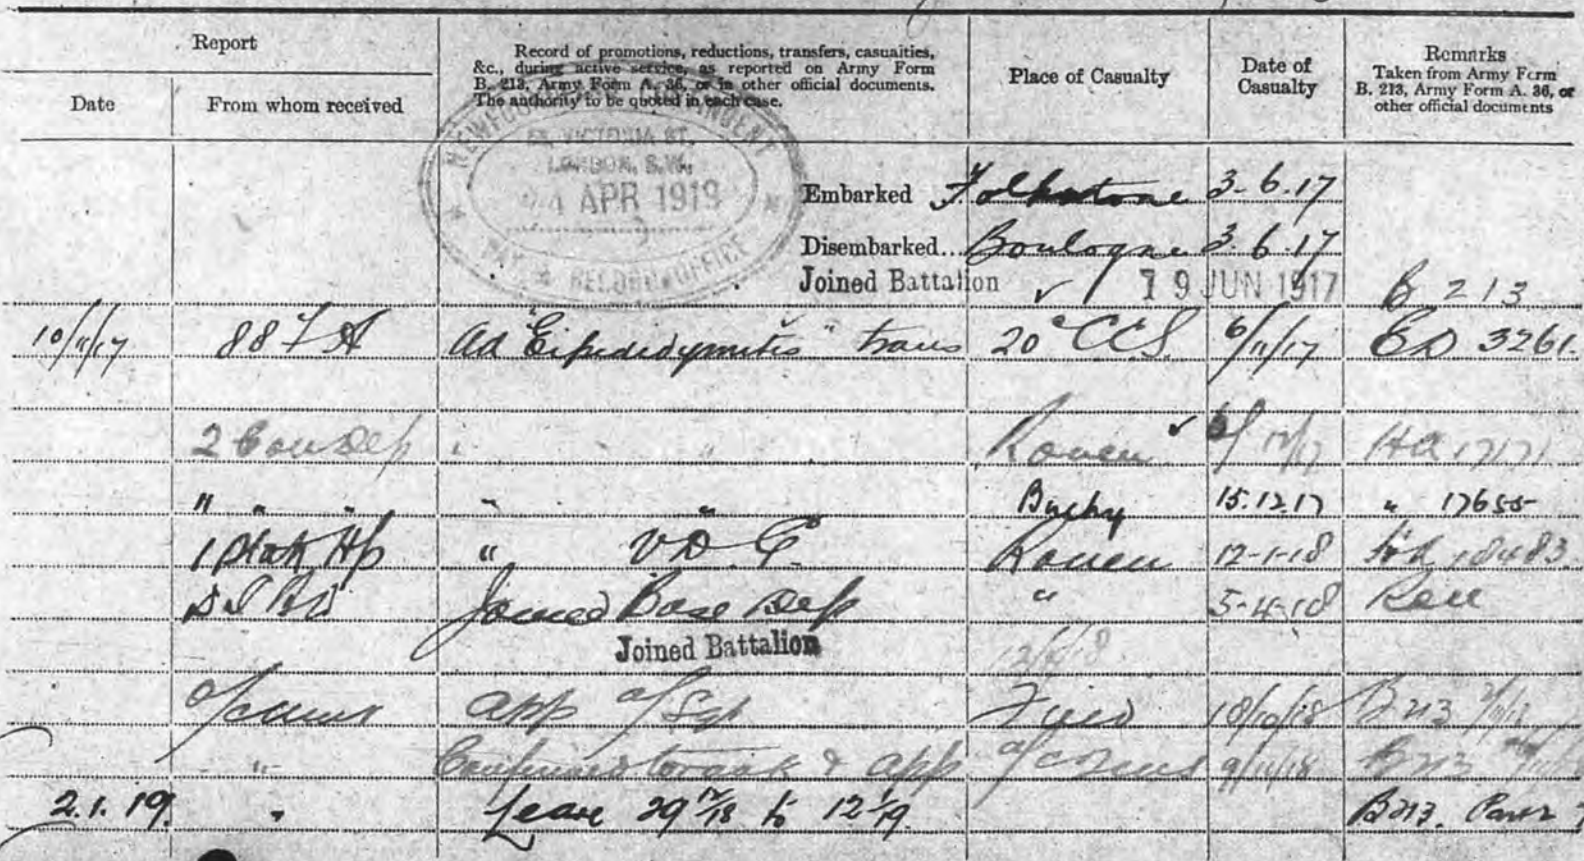 Report
Record of promotions, reductions, transfers, casualties,
&c., during active service, as reported on Army Form
B. 213, Army Form A. 36, or in other official documents.
The authority to be quoted in each case.
Place of Casualty
Date of
Casualty
Remarks
Taken from Army Form
B. 213, Army Form A. 36, or
other official documents
Date From whom received
NEWFOUNDLAND CONTINGENT
58, VICTORIA ST.
LONDON, S.W.
4 APR 1919
PAY & RECORD OFFICE
Embarked Folkstone 3.6.17
Disembarked... Boulogne 3.6.17
Joined Battalion 19 JUN 1917 B 213
10/11/17 88 F A ad trans 20 CCS 6/11/17 3261
2 Con Dep " " Rouen /17
" " " " " Buchy 15.12.17 " 17655
1 Hp " V.D.G. Rouen 12-1-18 18483
Joined Base Dep " 5-4-18
Joined Battalion
app a/Sgt Field 18/10/18 B213
" Confirmed to rank & app 9/11/18 B213
2.1.19. " Leave 29 12/18 to 12 1/19. B213.